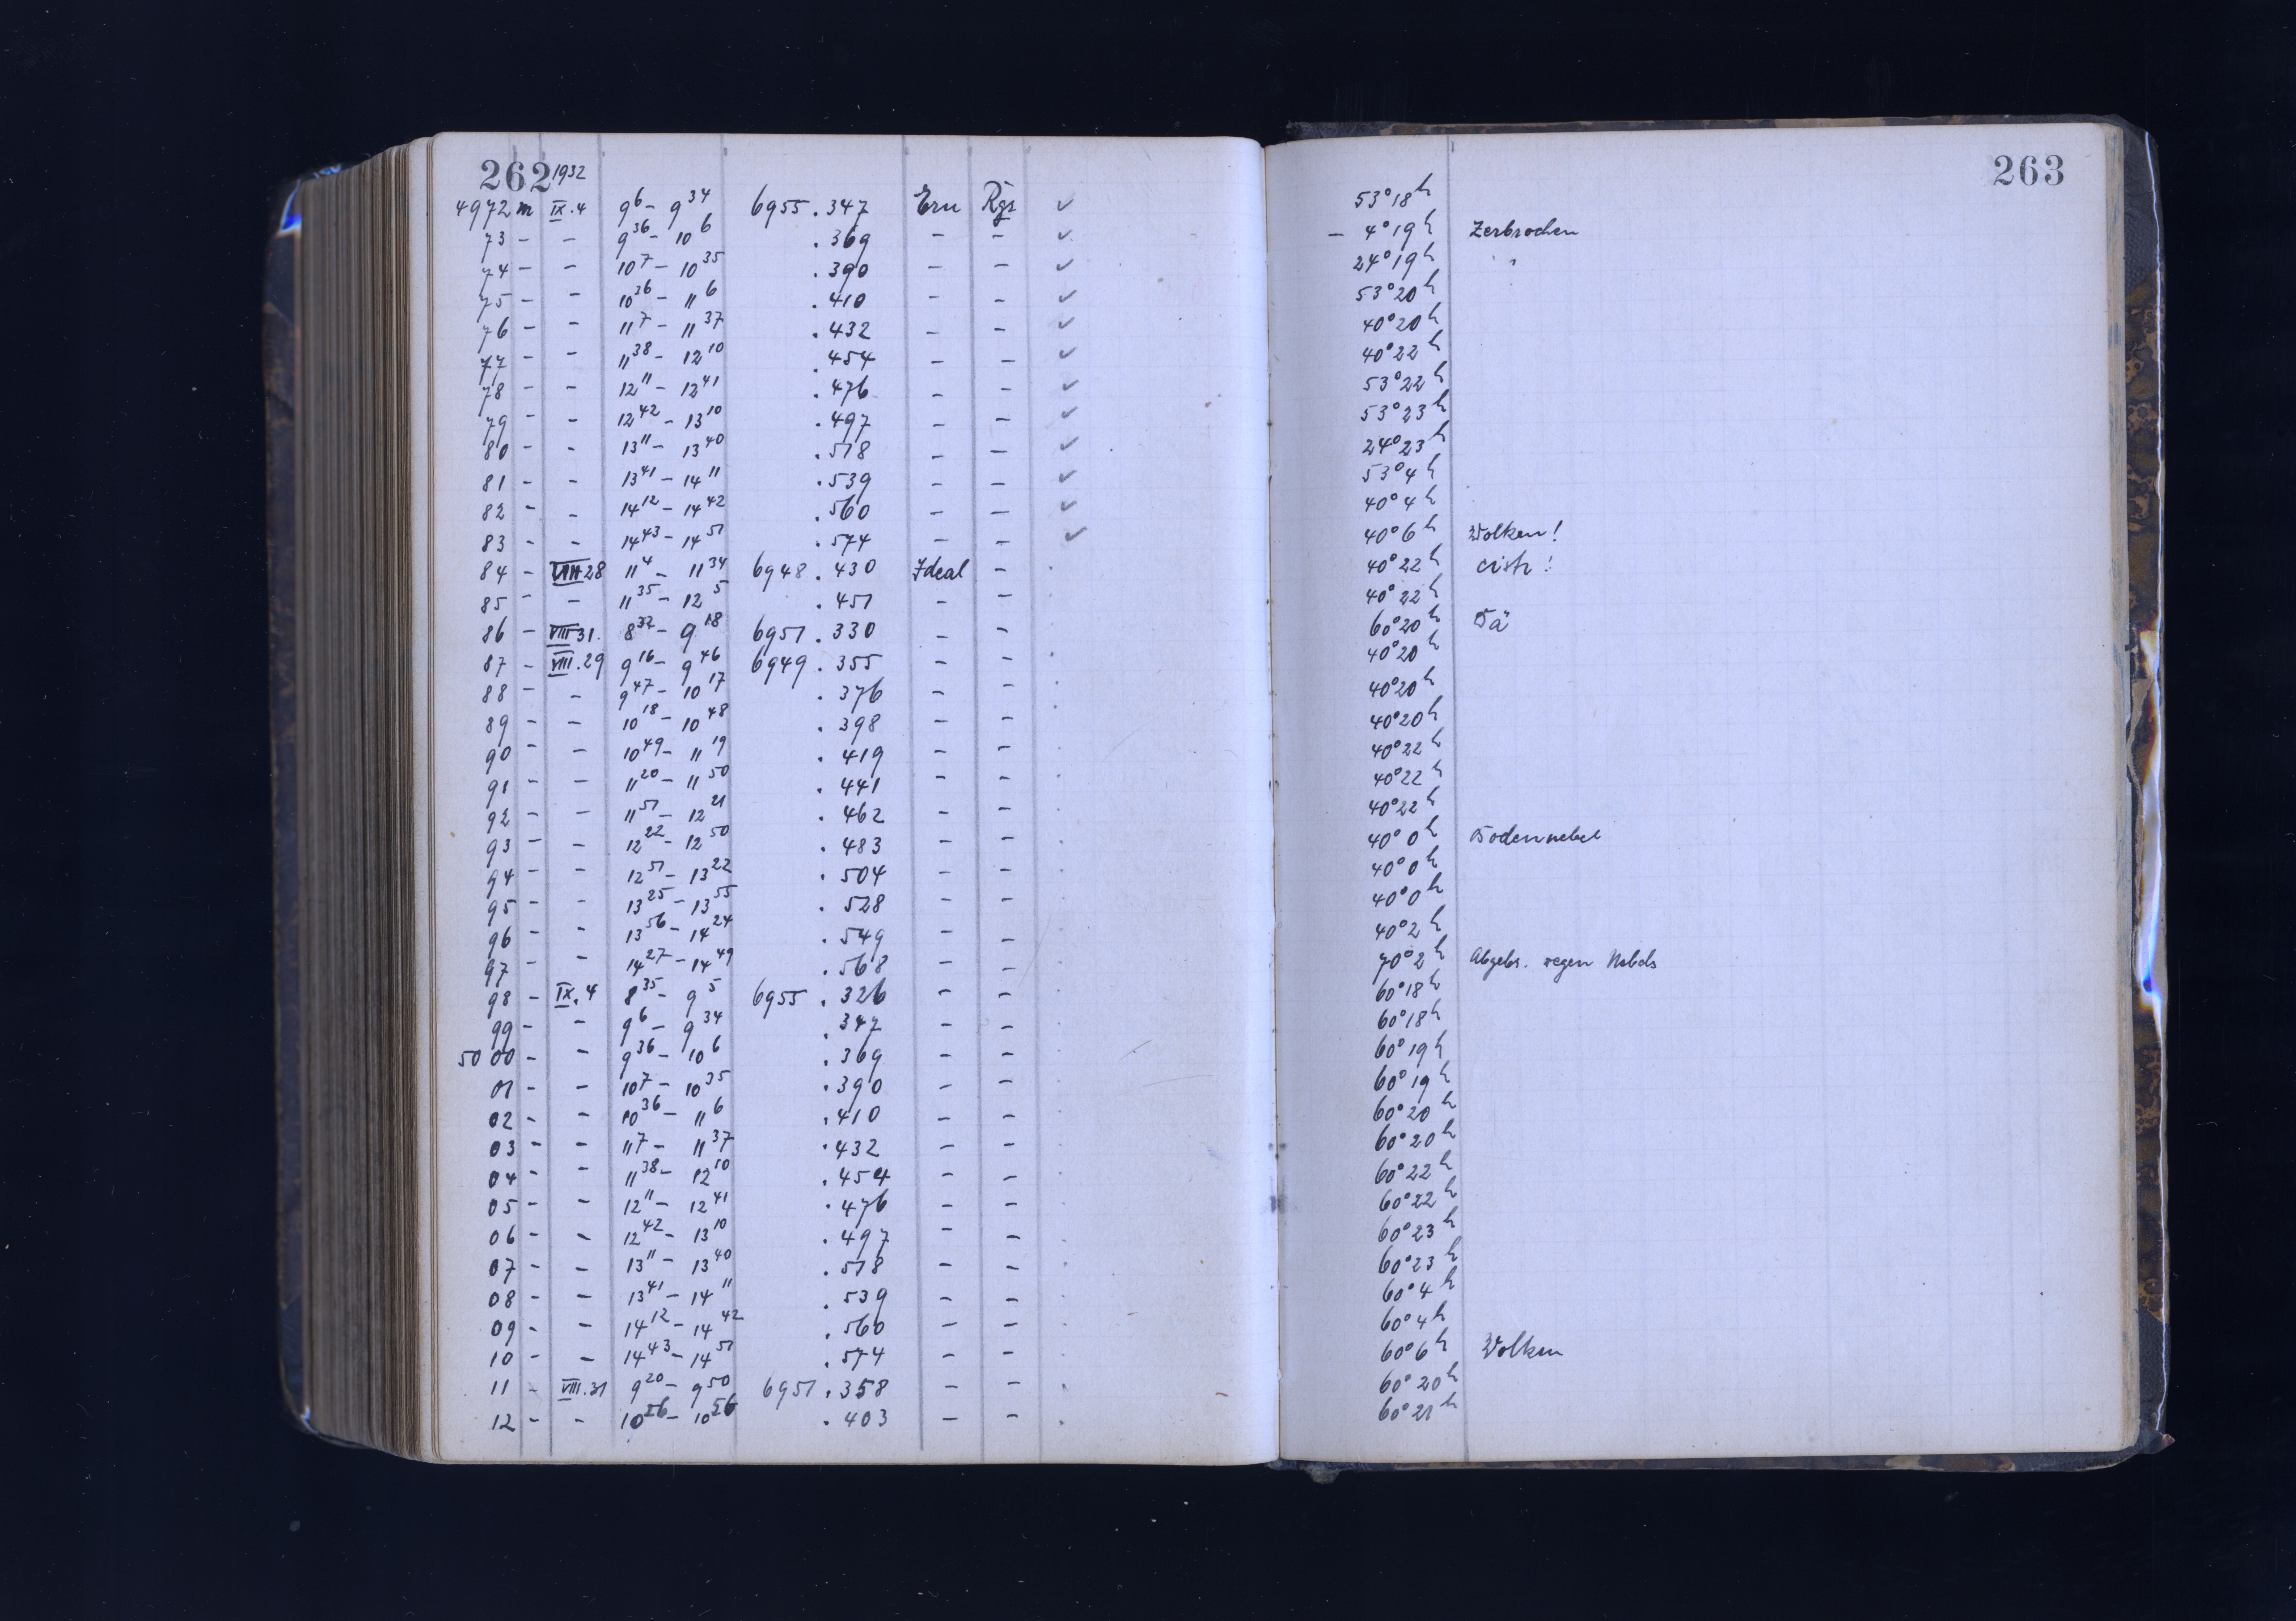 262 1932 263
4972 m IX.4 9 6 – 9 34 6955 .347 Ern Rgr ✓ 53° 18 h
73 – – 9 36 – 10 6 .369 – – ✓ – 4° 19 h Zerbrochen
74 – – 10 7 – 10 35 .390 – – ✓ 24° 19 h
75 – – 10 36 – 11 6 .410 – – ✓ 53° 20 h
76 – – 11 7 – 11 37 .432 – – ✓ 40° 20 h
77 – – 11 38 – 12 10 .454 – – ✓ 40° 22 h
78 – – 12 11 – 12 41 .476 – – ✓ 53° 22 h
79 – – 12 42 – 13 10 .497 – – ✓ 53° 23 h
80 – – 13 11 – 13 40 .518 – – ✓ 24° 23 h
81 – – 13 41 – 14 11 .539 – – ✓ 53° 4 h
82 – – 14 12 – 14 42 .560 – – ✓ 40° 4 h
83 – – 14 43 – 14 51 .574 – – ✓ 40° 6 h Wolken!
84 – VIII 28 11 4 – 11 34 6948 .430 Ideal – . 40° 22 h !
85 – – 11 35 – 12 5 .451 – – . 40° 22 h
86 – VIII 31. 8 32 – 9 18 6951 .330 – – . 60° 20 h Bä
87 – VIII.29 9 16 – 9 46 6949 .355 – – . 40° 20 h
88 – – 9 47 – 10 17 .376 – – . 40° 20 h
89 – – 10 18 – 10 48 .398 – – . 40° 20 h
90 – – 10 49 – 11 19 .419 – – . 40° 22 h
91 – – 11 20 – 11 50 .441 – – . 40° 22 h
92 – – 11 51 – 12 21 .462 – – . 40° 22 h
93 – – 12 22 – 12 50 .483 – – . 40° 0 h Bodennebel
94 – – 12 51 – 13 22 .504 – – . 40° 0 h
95 – – 13 25 – 13 55 .528 – – . 40° 0 h
96 – – 13 56 – 14 24 .549 – – . 40° 2 h
97 – – 14 27 – 14 49 .568 – – . 70° 2 h Abgebr. wegen Nebels
98 – IX.4 8 35 – 9 5 6955 .326 – – . 60° 18 h
99 – – 9 6 – 9 34 .347 – – . 60° 18 h
5000 – – 9 36 – 10 6 .369 – – . 60° 19 h
01 – – 10 7 – 10 35 .390 – – . 60° 19 h
02 – – 10 36 – 11 6 .410 – – . 60° 20 h
03 – – 11 7 – 11 37 .432 – – . 60° 20 h
04 – – 11 38 – 12 10 .454 – – . 60° 22 h
05 – – 12 11 – 12 41 .476 – – . 60° 22 h
06 – – 12 42 – 13 10 .497 – – . 60° 23 h
07 – – 13 11 – 13 40 .518 – – . 60° 23 h
08 – – 13 41 – 14 11 .539 – – . 60° 4 h
09 – – 14 12 – 14 42 .560 – – . 60° 4 h
10 – – 14 43 – 14 51 .574 – – . 60° 6 h Wolken
11 – VIII.31 9 20 – 9 50 6951 .358 – – . 60° 20 h
12 – – 10 26 – 10 56 .403 – – . 60° 21 h